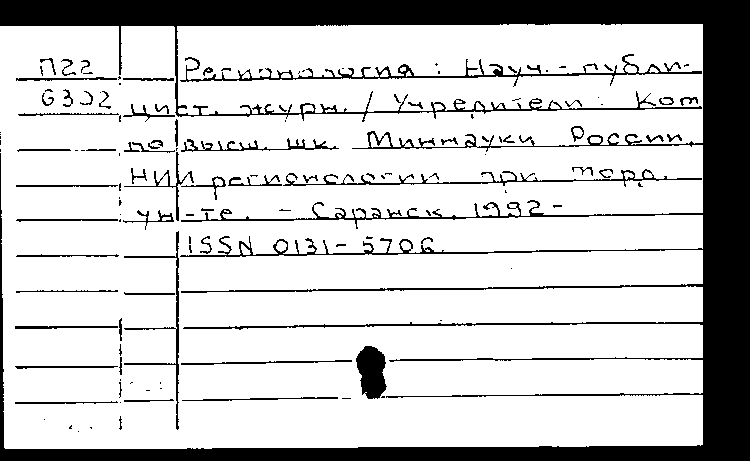 П22 Регионология : Науч.-публи-
6302 цист. журн. / Учредители : Ком
по высш. шк. Миннауки России,
НИИ регионологии при Морд.
ун-те. - Саранск, 1992-
ISSN 0131-5706.